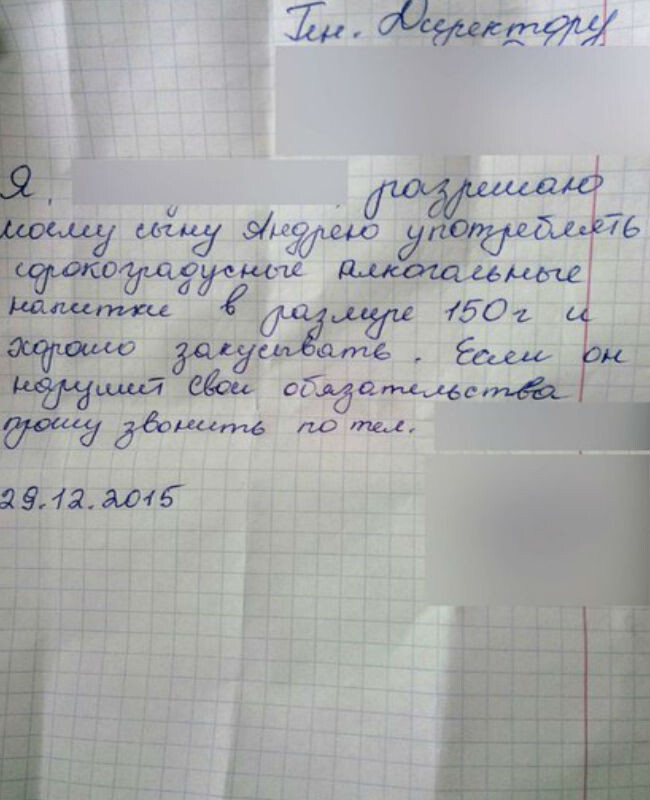 Ген. Директору
Я, разрешаю
моему сыну Андрею употреблять
сорокоградусные алкогольные
напитки в размере 150 г и
хорошо закусывать. Если он
нарушит свои обязательства
прошу звонить по тел.
29.12.2015